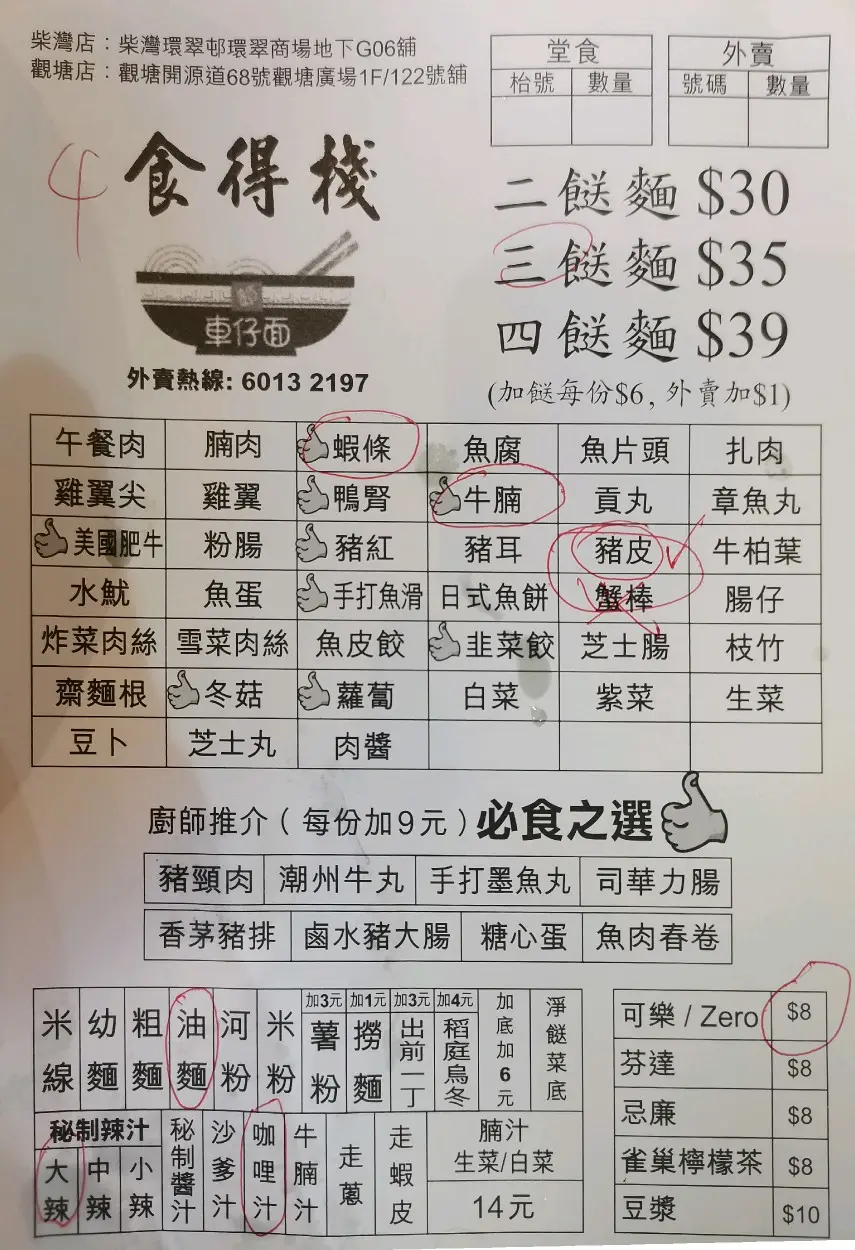 柴灣店：柴灣環翠邨環翠商場地下G06舖
觀塘店：觀塘開源道68號觀塘廣場1F/122號舖
堂食
枱號 數量
外賣
號碼 數量
4
食得棧
車仔面
外賣熱線: 6013 2197
二餸麵 $30
三餸麵 $35
四餸麵 $39
(加餸每份$6, 外賣加$1)
午餐肉 腩肉 蝦條 魚腐 魚片頭 扎肉
雞翼尖 雞翼 鴨腎 牛腩 貢丸 章魚丸
美國肥牛 粉腸 豬紅 豬耳 豬皮 牛柏葉
水魷 魚蛋 手打魚滑 日式魚餅 蟹棒 腸仔
炸菜肉絲 雪菜肉絲 魚皮餃 韭菜餃 芝士腸 枝竹
齋麵根 冬菇 蘿蔔 白菜 紫菜 生菜
豆卜 芝士丸 肉醬
廚師推介（每份加9元）必食之選
豬頸肉 潮州牛丸 手打墨魚丸 司華力腸
香茅豬排 鹵水豬大腸 糖心蛋 魚肉春卷
米線
幼麵
粗麵
油麵
河粉
米粉
加3元 薯粉
加1元 撈麵
加3元 出前一丁
加4元 稻庭烏冬
加底加6元
淨餸菜底
秘制辣汁
大辣
中辣
小辣
秘制醬汁
沙爹汁
咖哩汁
牛腩汁
走蔥
走蝦皮
腩汁
生菜/白菜
14元
可樂 / Zero $8
芬達 $8
忌廉 $8
雀巢檸檬茶 $8
豆漿 $10